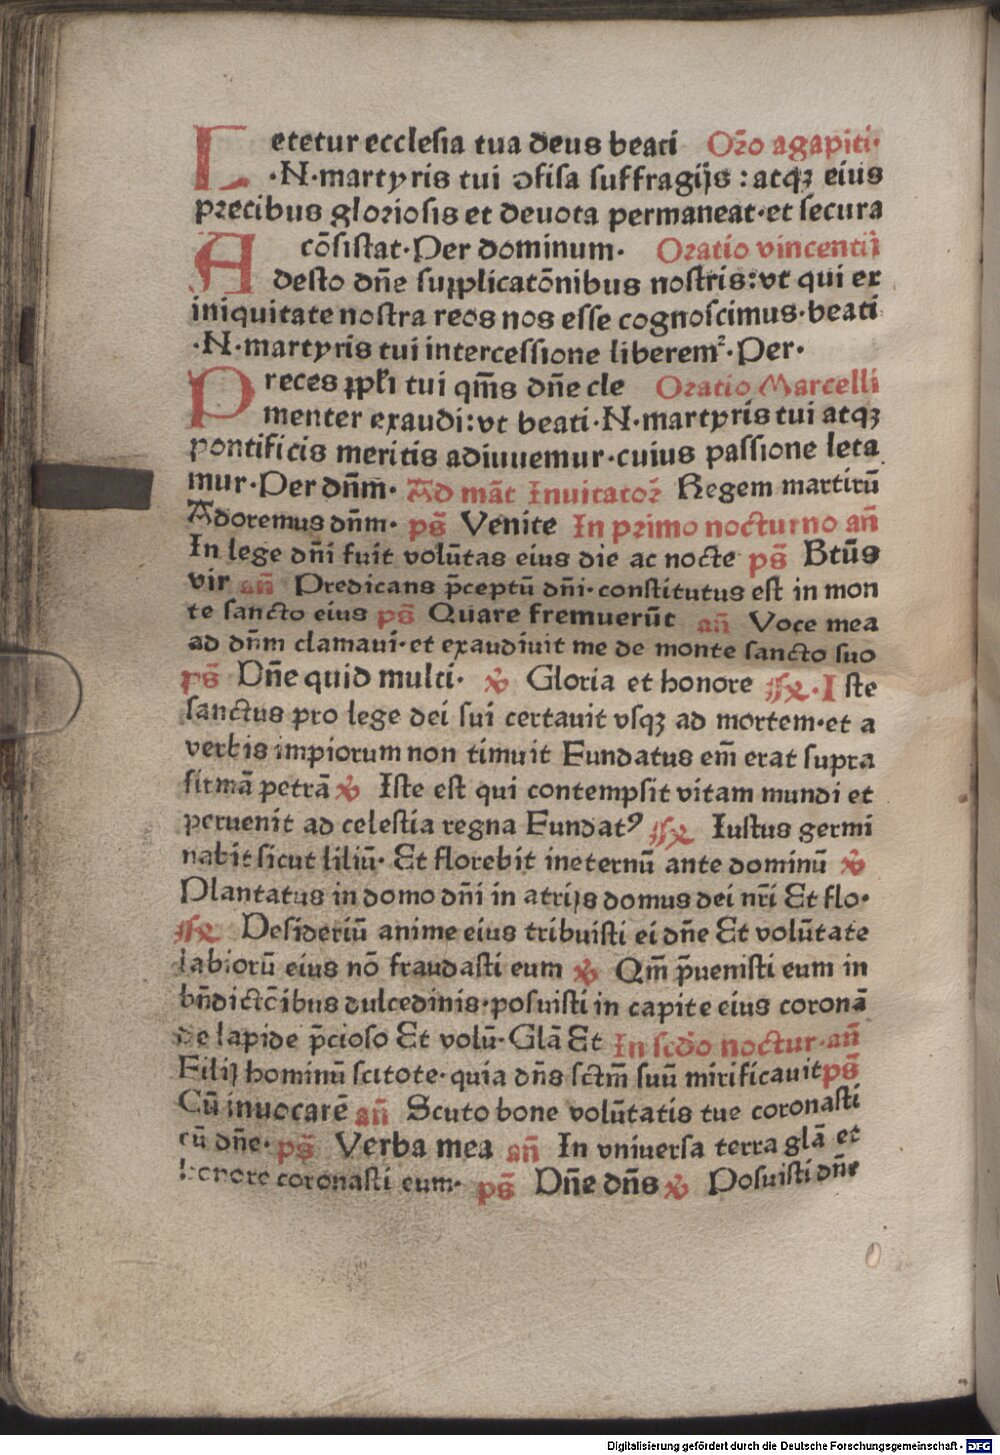 Letetur ecclesia tua deus beati Oꝛ̃o agapiti·
·N·martyris tui ↄfisa suffragijs : atqꝫ eius
precibus gloriosis et deuota permaneat·et secura
cõsistat·Per dominum· Oratio vincentij
Adesto dñe supplicatõnibus nostris:vt qui ex
iniquitate nostra reos nos esse cognoscimus·beati
·N·martyris tui intercessione liberemꝰ·Per·
Preces ppłi tui qm̃s dñe cle Oratio Marcelli
menter exaudi:vt beati·N·martyris tui atqꝫ
pontificis meritis adiuuemur·cuius passione leta
mur·Per dñm̃· Ad mãt Inuitatoꝛ̃ Regem martirũ
Adoremus dñm· pš Venite In primo nocturno añ
In lege dñi fuit volũtas eius die ac nocte pš Btũs
vir añ Predicans p̃ceptũ dñi·constitutus est in mon
te sancto eius pš Quare fremuerũt añ Voce mea
ad dñm clamaui·et exaudiuit me de monte sancto suo
pš Dñe quid multi· ꝟ Gloria et honore ℟·Iste
sanctus pro lege dei sui certauit vsqꝫ ad mortem·et a
verbis impiorum non timuit Fundatus em̃ erat supra
firmã petrã ꝟ Iste est qui contempsit vitam mundi et
peruenit ad celestia regna Fundatꝰ ℟ Iustus germi
nabit sicut liliũ· Et florebit ineternũ ante dominũ ꝟ
Plantatus in domo dñi in atrijs domus dei nr̃i Et flo·
℟ Desideriũ anime eius tribuisti ei dñe Et volũtate
labiorũ eius nõ fraudasti eum ꝟ Qm̃ p̃uenisti eum in
bñdictc̃ibus dulcedinis·posuisti in capite eius coronã
de lapide p̃cioso Et volũ· Glã Et In scđo noctur·añ
Filij hominũ scitote·quia dñs sctm̃ suũ mirificauit pš
Cũ inuocarẽ añ Scuto bone volũtatis tue coronasti
eũ dñe· pš Verba mea añ In vniuersa terra glã et
honore coronasti eum· pš Dñe dñs ꝟ Posuisti dñe
Digitalisierung gefördert durch die Deutsche Forschungsgemeinschaft - DFG